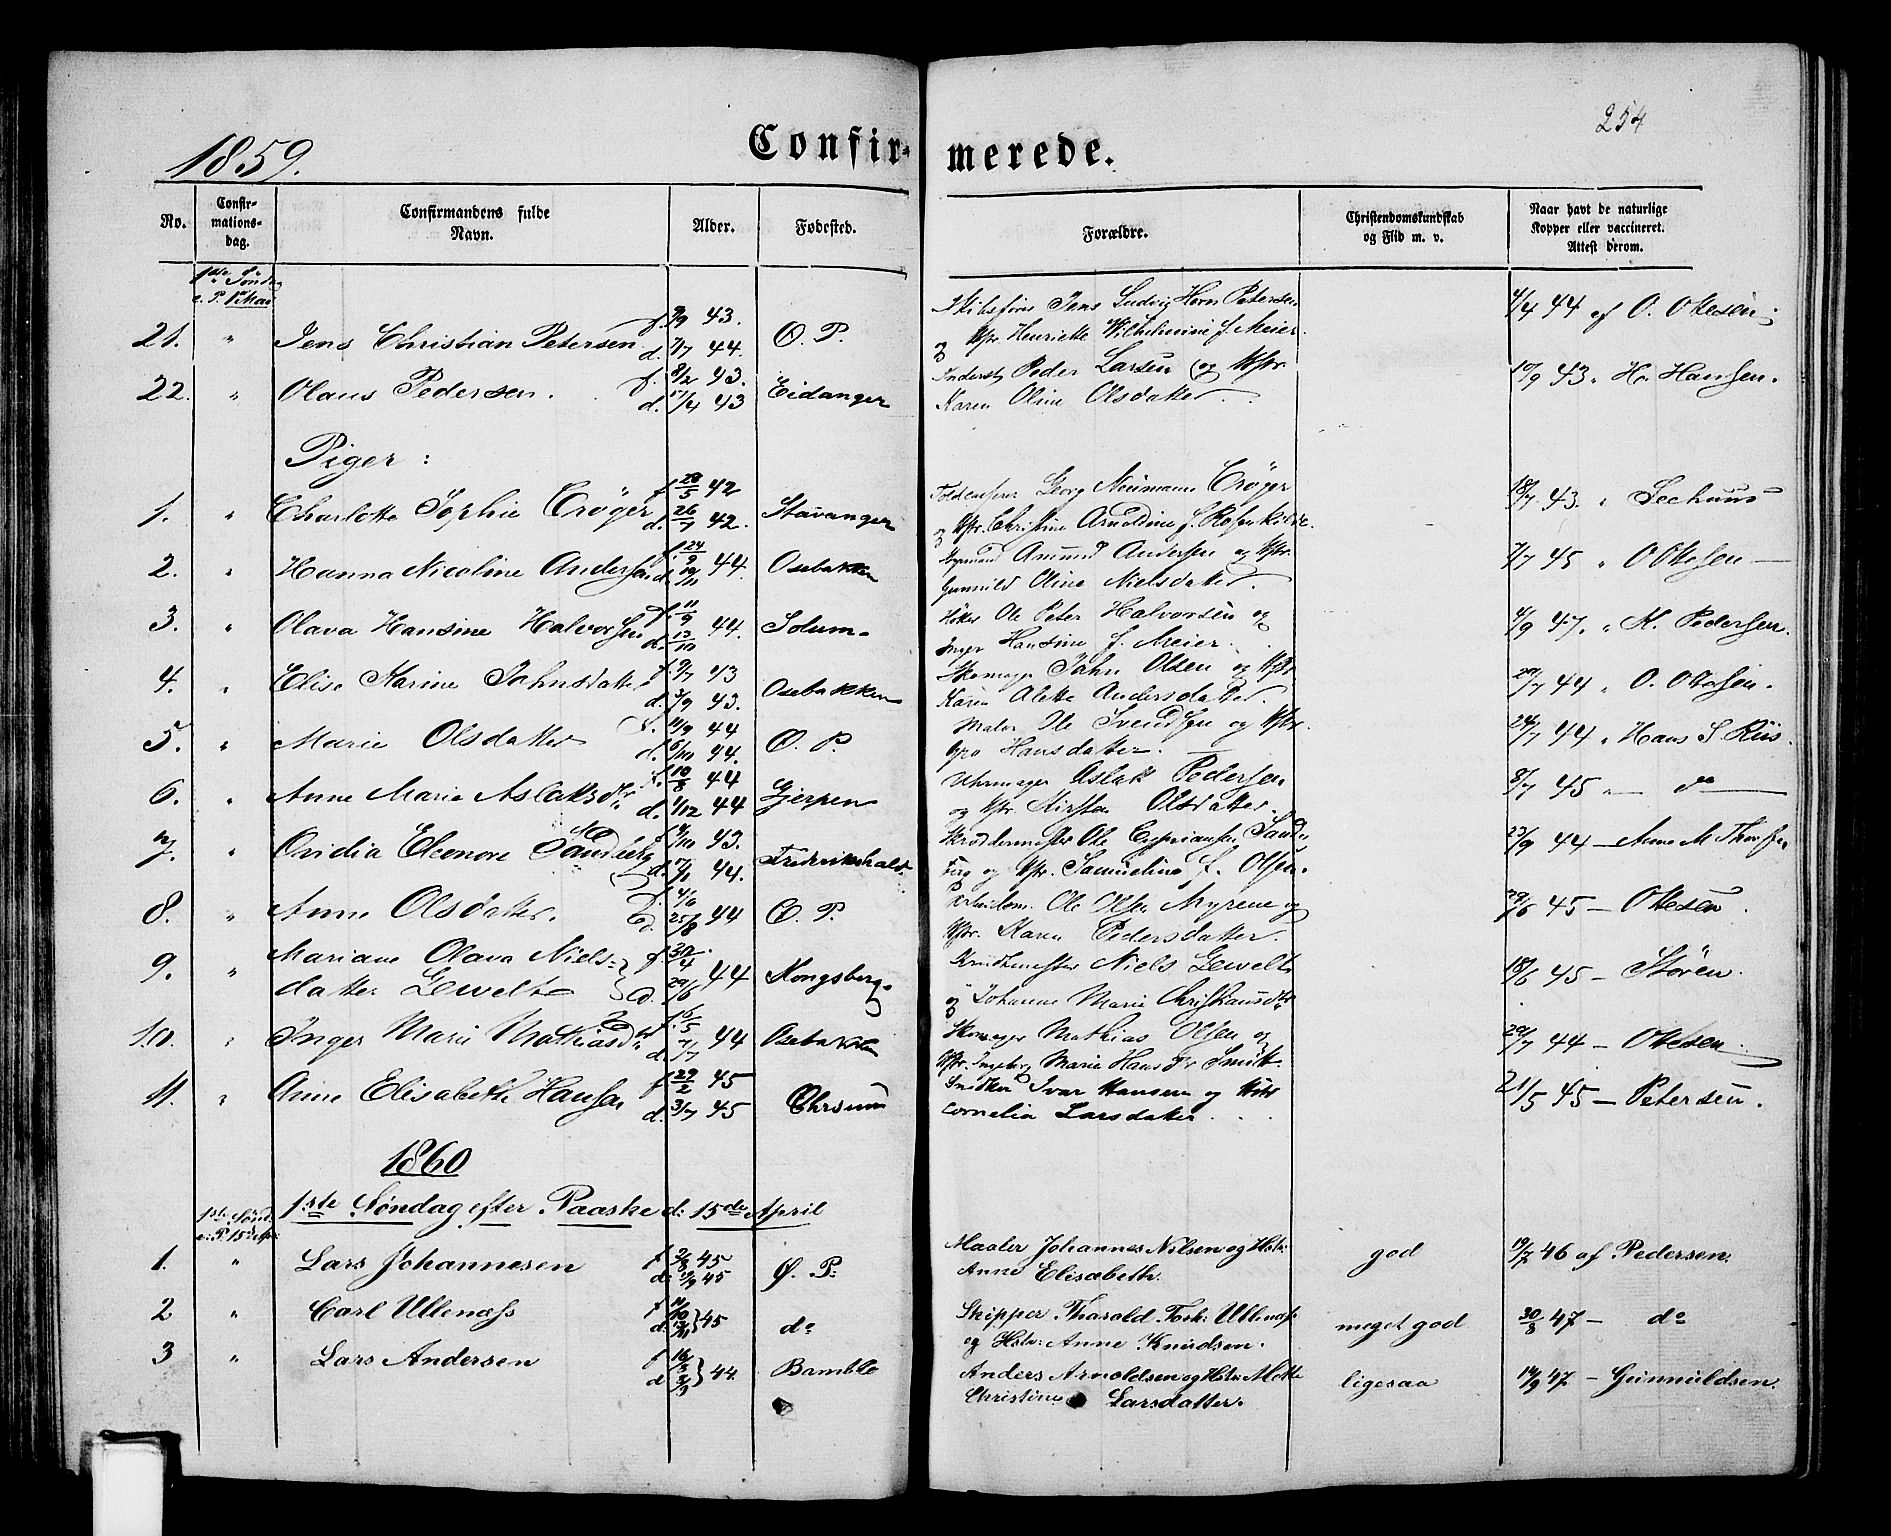 254
1859.
Confir-merede.
No. Confir-mations-dag. Confirmandens fulde Navn. Alder. Fødested. Forældre. Christendomskundskab og Flid m. v. Naar havt de naturlige Kopper eller vaccineret. Attest derom.
21. " Jens Christian Petersen f. 9/9 43. d. 7/7 44. Ø. P. Jens Ludvig Horn Petersen
og Hstr Henriette Wilhelmine f. Meier. 4/4 44 af O. Ottesen
22. " Olaus Pedersen. f. 8/2 43. d. 17/4 43 Eidanger Inderst Peder Larsen og Hstr.
Karen Oline Olsdatter. 10/9 43 " H. Hansen.
Piger:
1. " Charlotte Sophie Crøger f. 28/5 42 d. 26/7 42. Stavanger Georg Neumann Crøger
og Hstr. Christine Arnoldine f. Rosenkilde. 18/7 43. "
2. " Hanna Nicoline Andersen f. 24/9 d. 10/11 44. Osebakken Amund Andersen og Hstr.
Gunnild Oline Nielsdatter. 7/7 45 " Ottesen —
3. " Olava Hansine Halvorsen f. 11/9 d. 13/10 44. Solum Høker Ole Peter Halvorsen og
Inger Hansine f. Meier. 4/9 47. " M. Pedersen.
4. " Elise Marine Johnsdatter f. 9/7 43 d. 3/9 43. Osebakken Skomager John Olsen og Hstr
Karen Aleth Andersdatter. 20/7 44 " O. Ottesen.
5. " Marie Olsdatter f. 11/9 44 d. 6/10 44. Ø. P. Maler Ole Svendsen og Hstr.
Gro Hansdatter. 24/7 44 " Hans S. Riis.
6. " Anne Marie Aslaksdtr. f. 10/8 44 d. 1/12 44 Gjerpen Uhrmager Aslak Pedersen
og Hstr. Kirsten Olsdatter. 8/7 45 " — do —
7. " Ovidia Eleonore Sandberg f. 4/10 43. d. 17/1 44. Fredrikshald. Skræddermester Ole Cyprianssen Sand-
berg og Hstr. Samueline f. Olsen. 23/9 44 — Anne M. Thorsen
8. " Anne Olsdatter. f. 4/6 d. 25/8 44 Ø. P. Ole Olsen Myrene og
Hstr. Karen Pedersdatter. 29/6 45 — Ottesen.
9. " Mariane Olava Niels-
datter Gewelt f. 30/4 d. 29/6 44 Kongsberg. Niels Gewelt
og Johanne Marie Christiansdtr 18/6 45 — Støren.
10. " Inger Marie Mathiasdtr f. 16/5 d. 7/7 44 Osebakken Skomager Mathias Olsen og
Hstr. Ingeborg Marie Hansdtr Smit. 20/7 44 — Ottesen.
11. " Anne Elisabeth Hansen f. 22/2 45 d. 3/7 45 Snidker Ivar Hansen og Hstr
Cornelia Larsdatter. 21/5 45 — Petersen.
1860
1ste Søndag efter Paaske d: 15de April
1. " Lars Johannesen f. 2/8 45 d: 14/9 45 Ø. P: Maaler Johannes Nilsen og Hstr:
Anne Elisabeth. god 19/7 46 af Pedersen.
2 " Carl Ullenæss f. d. 45 do Skipper Tharald Tork: Ullenæss
og Hstr: Anne Knudsen. meget god 30/8 47 — do
3 " Lars Andersen f 16/3 d 3/9 44. Bamble Anders Arnoldsen og Hstr: Mette
Christine Larsdatter. ligesaa 14/9 47 — Gunnuldsen.